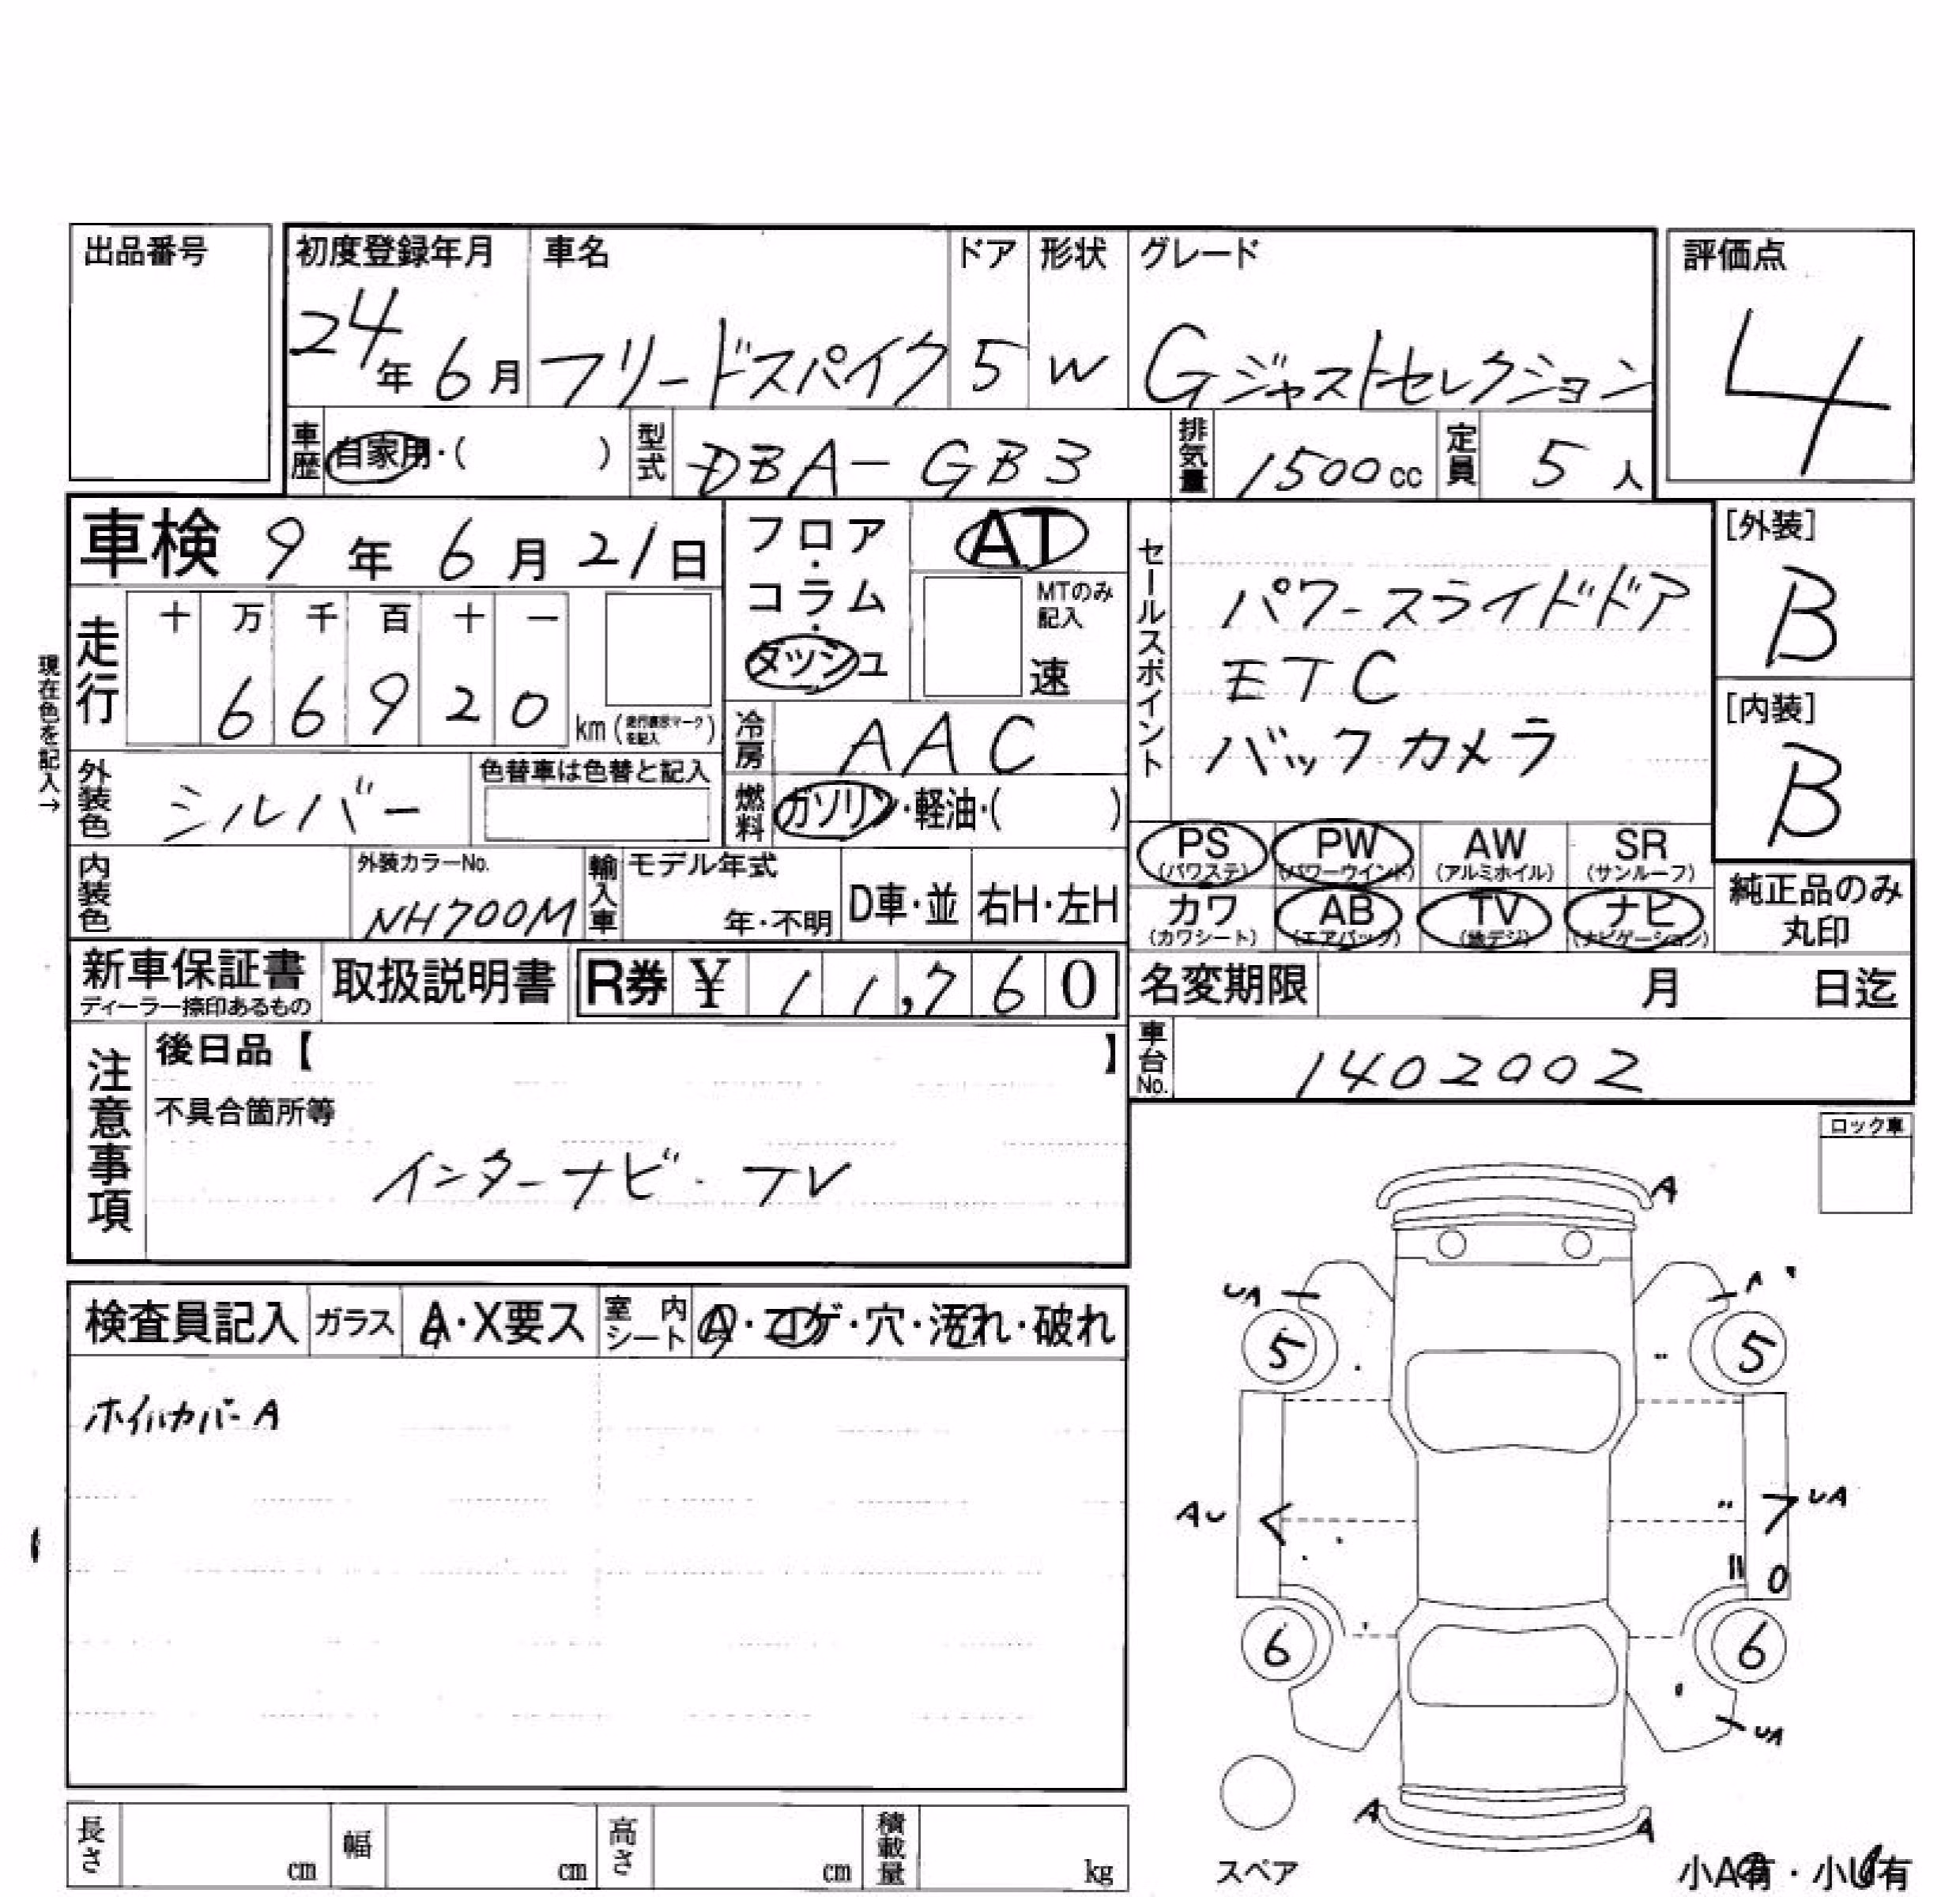 出品番号
初度登録年月 車名 ドア 形状 グレード 評価点
24年 6月 フリードスパイク 5 W Gジャストセレクション 4
車歴 自家用・( ) 型式 DBA-GB3 排気量 1500cc 定員 5人
車検 9年 6月 21日
フロア・コラム・ダッシュ
AT
MTのみ記入
速
セールスポイント
パワースライドドア
ETC
バックカメラ
[外装]
B
[内装]
B
現在色を記入→
走行 十 万 千 百 十 一
6 6 9 2 0 km (走行表示マークを記入)
冷房 AAC
外装色 シルバー 色替車は色替と記入
燃料 ガソリン・軽油・( )
PS (パワステ) PW (パワーウインド) AW (アルミホイル) SR (サンルーフ)
カワ (カワシート) AB (エアバック) TV (地デジ) ナビ (ナビゲーション)
純正品のみ
丸印
内装色 外装カラーNo. NH700M 輸入車 モデル年式 年・不明 D車・並 右H・左H
新車保証書 ディーラー捺印あるもの 取扱説明書 R券 ¥ 11,760
名変期限 月 日迄
車台No. 1402002
注意事項
後日品【 】
不具合箇所等
インターナビ・TV
ロック車
検査員記入 ガラス A・X要ス 室内シート A・コゲ・穴・汚れ・破れ
ホイルカバーA
A
UA A
5 5
AU UA
6 6
UA
A A
スペア
小A有・小U有
長さ cm 幅 cm 高さ cm 積載量 kg